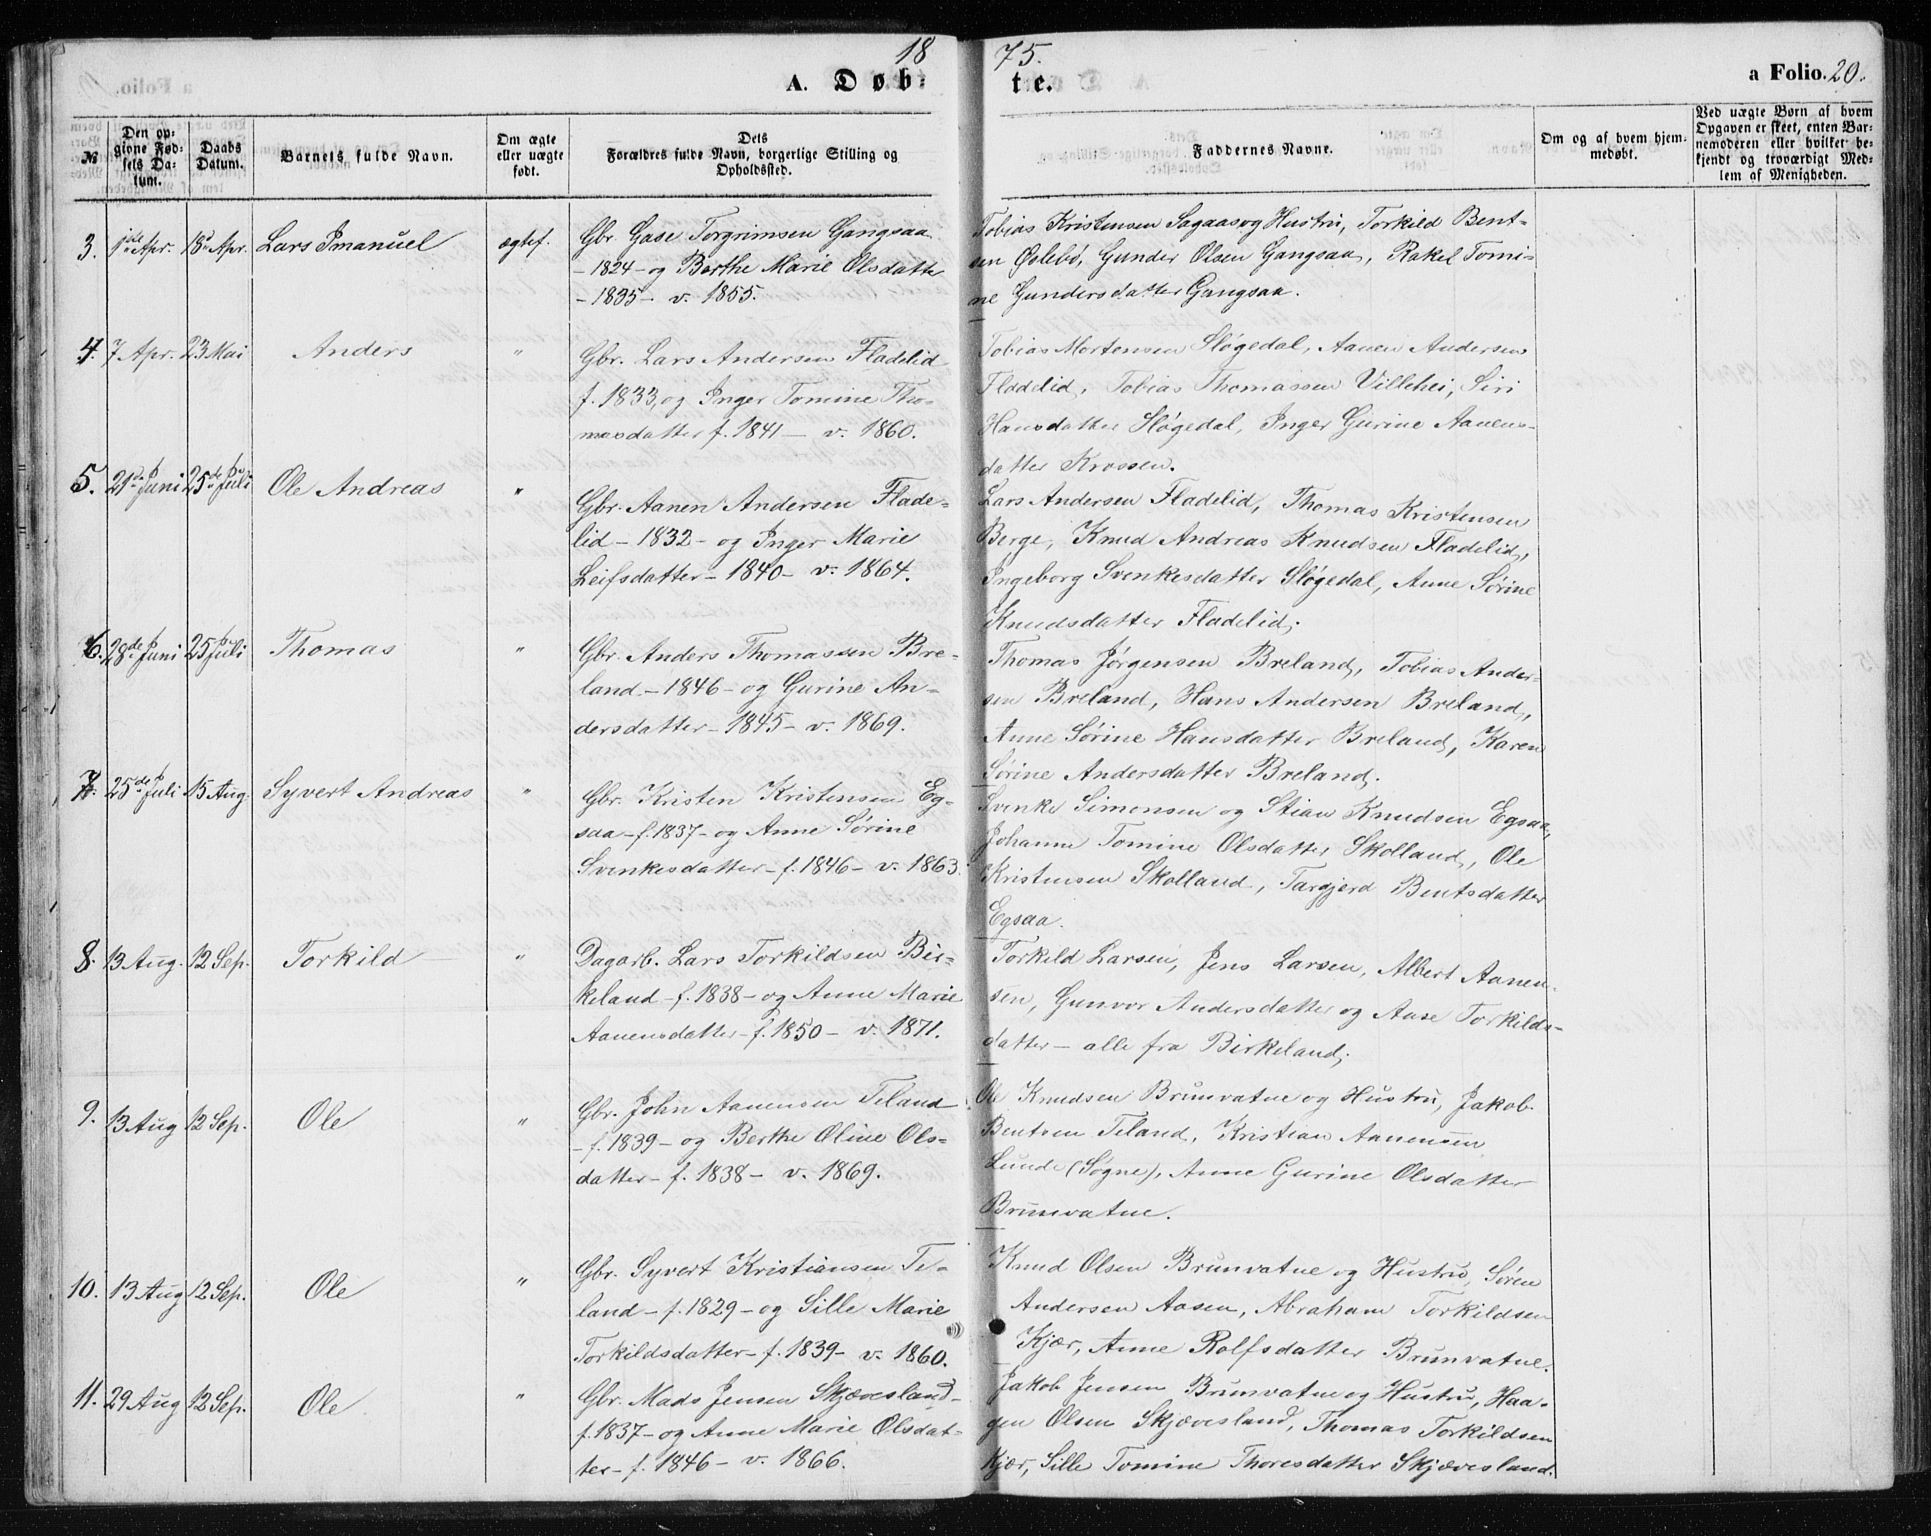 18 75.
A. Døb-
te.
a Folio. 20.
№
Den op-
givne Fød-
sels Da-
tum.
Daabs
Datum.
Barnets fulde Navn.
Om ægte
eller uægte
født.
Dets
Forældres fulde Navn, borgerlige Stilling og
Opholdssted.
Faddernes Navne.
Om og af hvem hjem-
medøbt.
Ved uægte Børn af hvem
Opgaven er skeet, enten Bar-
nemoderen eller hvilket be-
kjendt og troværdigt Med-
lem af Menigheden.
3. 1ste Apr. 18de Apr. Lars Imanuel ægtef.
Gbr. Gase Torgrimsen Gangsaa
- 1824 - og Berthe Marie Olsdatter
- 1835 - v. 1855.
Tobias Kristensen Sagaas og Hustru, Torkild Bent-
sen Øslebø, Gunder Olsen Gangsaa, Rakel Tomi-
ne Gundersdatter Gangsaa.
4. 7 Apr. 23 Mai Anders "
Gbr. Lars Andersen Fladelid
f. 1833, og Inger Tomine Tho-
masdatter f. 1841 - v. 1860.
Tobias Mortensen Sløgedal, Aanen Andersen
Fladelid, Tobias Thomassen Villehei, Siri
Hansdatter Sløgedal, Inger Gurine Aanens-
datter Krossen.
5. 21de Juni 25de Juli Ole Andreas "
Gbr. Aanen Andersen Flade-
lid - 1832 - og Inger Marie
Leifsdatter - 1840 - v. 1864.
Lars Andersen Fladelid, Thomas Kristensen
Berge, Knud Andreas Knudsen Fladelid,
Ingeborg Svenkesdatter Sløgedal, Anne Sørine
Knudsdatter Fladelid.
6. 28de Juni 25 Juli Thomas "
Gbr. Anders Thomassen Bre-
land - 1846 - og Gurine An-
dersdatter - 1845 - v. 1869.
Thomas Jørgensen Breland, Tobias Ander-
sen Breland, Hans Andersen Breland,
Anne Sørine Hansdatter Breland, Karen
Sørine Andersdatter Breland.
7. 25de Juli 15 Aug. Syvert Andreas "
Gbr. Kristen Kristensen Eg-
saa - f. 1837 - og Anne Sørine
Svenkesdatter - f. 1846 - v. 1863.
Svenke Simonsen og Stian Knudsen Egsaa,
Johanne Tomine Olsdatter Skolland, Ole
Kristensen Skolland, Targjerd Bentsdatter
Egsaa.
8. 13 Aug. 12 Sep. Torkild "
Dagarb. Lars Torkildsen Bir-
keland - f. 1838 - og Anne Marie
Aanensdatter - f. 1850 - v. 1871.
Torkild Larsen, Jens Larsen, Albert Aanen-
sen, Gunvor Andersdatter og Aase Torkilds-
datter - alle fra Birkeland.
9. 13 Aug 12 Sep. Ole "
Gbr. John Aanensen Teland
- f. 1839 - og Berthe Oline Ols-
datter - f. 1838 - v. 1869.
Ole Knudsen Brunvatne og Hustru, Jakob
Bentsen Teland, Kristian Aanensen
Lunde (Søgne), Anne Gurine Olsdatter
Brunvatne.
10. 13 Aug 12 Sep. Ole "
Gbr. Syvert Kristiansen Te-
land - f. 1829 - og Sille Marie
Torkildsdatter - f. 1839 - v. 1860.
Knud Olsen Brunvatne og Hustru, Søren
Andersen Aasen, Abraham Torkildsen
Kjær, Anne Rolfsdatter Brunvatne.
11. 29 Aug 12 Sep. Ole "
Gbr. Mads Jensen Skjævesland -
f. 1837 - og Anne Marie Olsdat-
ter - f. 1846 - v. 1866.
Jakob Jensen Brunvatne og Hustru, Haa-
gen Olsen Skjævesland, Thomas Torkildsen
Kjær, Sille Tomine Thoresdatter Skjævesland.